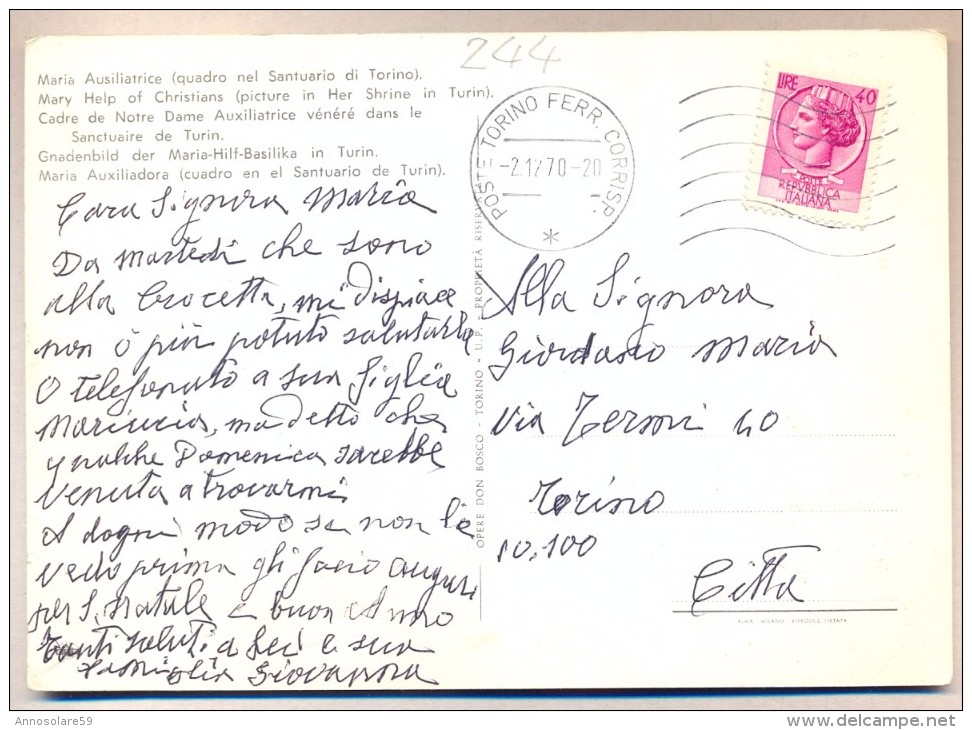 244
Maria Ausiliatrice (quadro nel Santuario di Torino).
Mary Help of Christians (picture in Her Shrine in Turin).
Cadre de Notre Dame Auxiliatrice vénéré dans le
Sanctuaire de Turin.
Gnadenbild der Maria-Hilf-Basilika in Turin.
Maria Auxiliadora (cuadro en el Santuario de Turin).
Cara Signora Maria
Da Martedi che sono
alla Crocetta, mi dispiace
non ò più potuto salutarla
O telefonato a sua figlia
Mariuccia, ma detto che
qualche Domenica sarebbe
venuta a trovarmi
A dogni modo se non la
vedo prima gli facio auguri
per S. Natale e buon Anno
Tanti saluti a Lei e sua
famiglia Giovanna
OPERE DON BOSCO - TORINO - U.P. - PROPRIETÀ RISERVATA
POSTE TORINO FERR. CORRISP.
-2.12 70 -20
*
LIRE 40
POSTE
REPVBBLICA
ITALIANA
Alla Signora
Giordano Maria
Via Termi 40
Torino
10.100
Città
MILANO - VIETATA
Annosolare59
delcampe.net